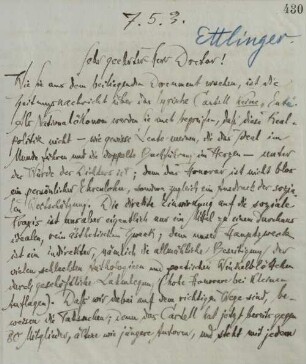 480
7.5.3.
Ettlinger.
Sehr geehrter Herr Doctor!
Wie Sie aus dem beiliegenden Document ersehen, ist die
Zeitungsnachricht über das lyrische Cartell keine
werden Sie auch begreifen, daß diese Real-
politik nicht – wie gewisse Leute meinen, die das Ideal im
Munde führen und die doppelte Buchführung im Herzen – unter
der Würde des Dichters ist; denn das Honorar ist nicht blos
ein persönlicher Ehrenlohn, sondern zugleich ein Ausdruck der sozia-
len Werthschätzung. Die direkte Einwirkung auf die soziale
Praxis ist uns aber eigentlich nur ein Mittel zu einem durchaus
idealen, rein ästhetischen Zweck; denn unser Hauptzweck
ist ein indirekter, nämlich die allmähliche Beseitigung der
vielen schlechten Anthologieen und poetischen
durch geschäftliche Lahmlegung (hohe Honorare bei kleinen
Auflagen). Daß wir dabei auf dem richtigen Wege sind, be-
weisen die Thatsachen; denn das Cartell hat jetzt bereits gegen
80 Mitglieder, ältere wie jüngere Autoren, und steht mit jedem